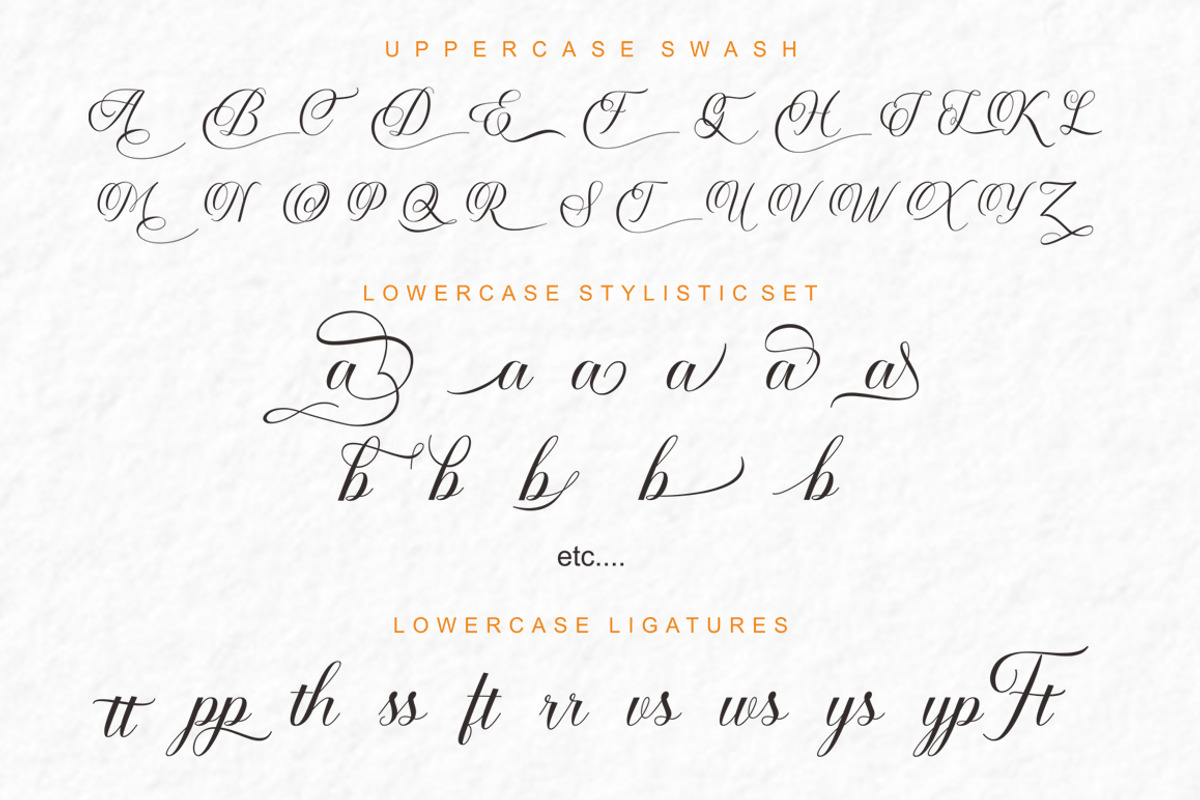 UPPERCASE SWASH
A B C D E F G H I J K L
M N O P Q R S T U V W X Y Z
LOWERCASE STYLISTIC SET
a a a a a a
b b b b b
etc....
LOWERCASE LIGATURES
tt pp th ss ft rr vs ws ys yp Ft